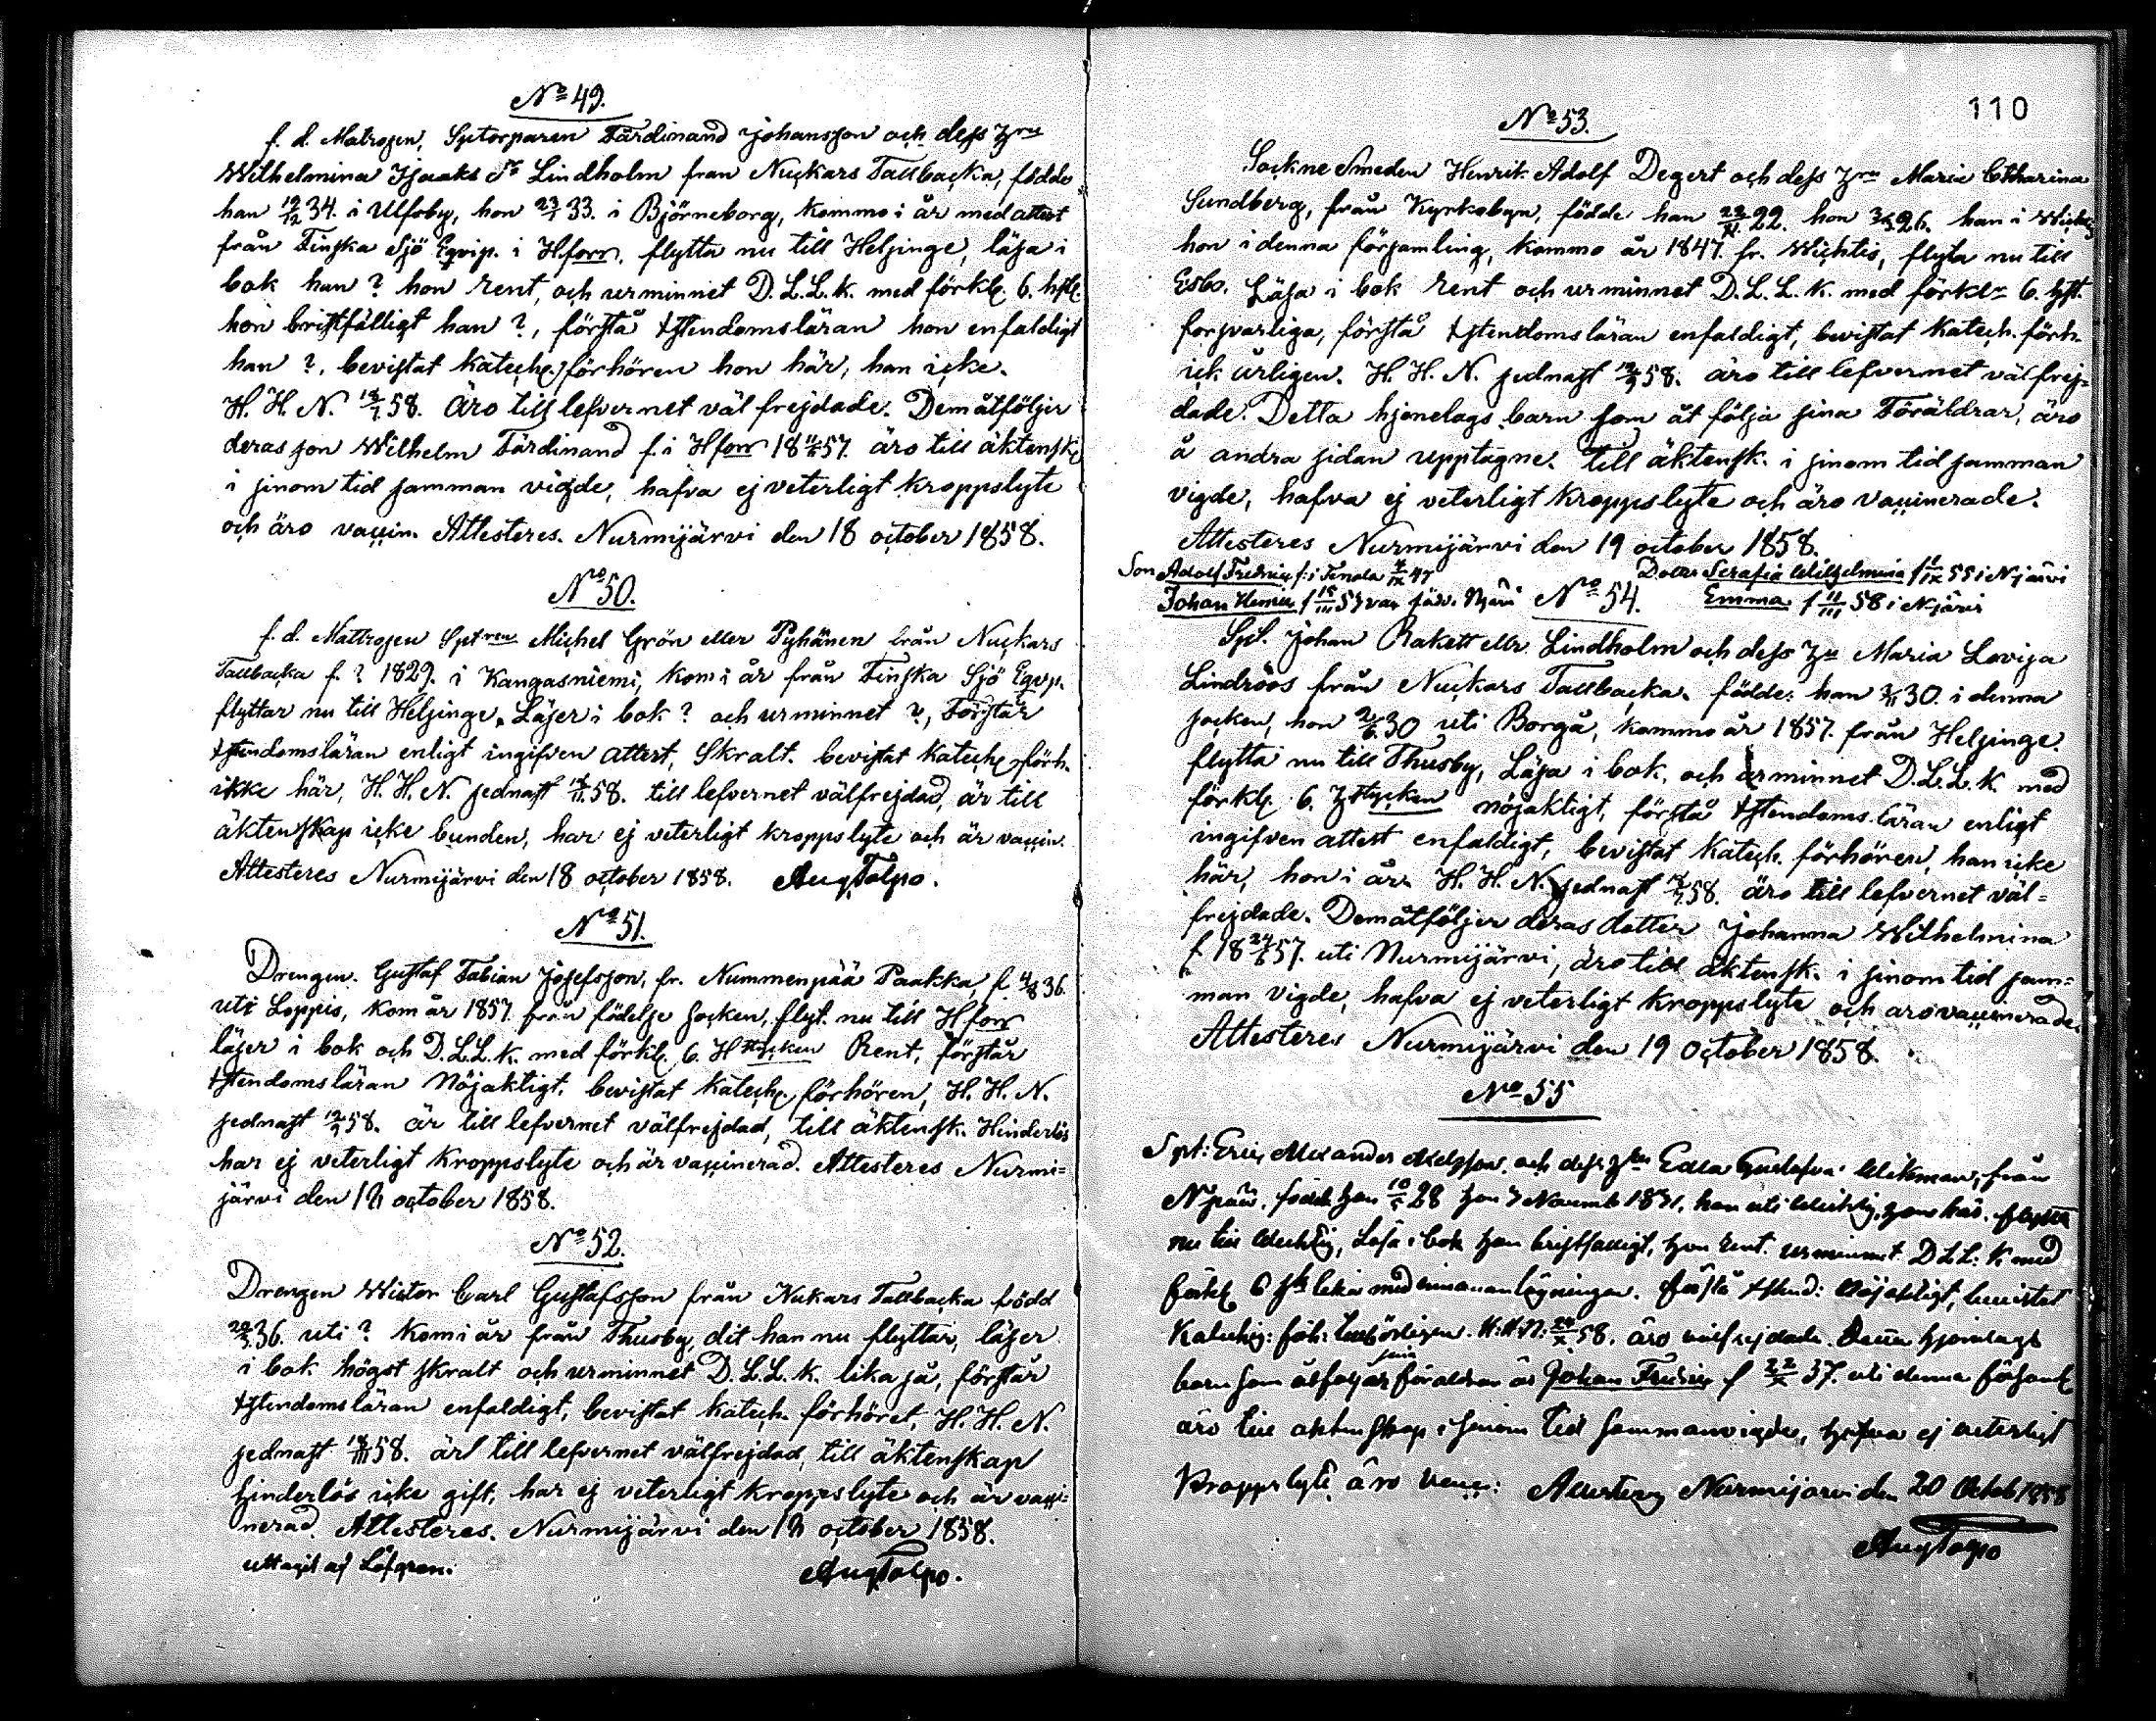 No 49.
f. d. Matrosen, Sytorparen Färdinand Johansson och dess
Wilhelmina Isaaks Dr Lindholm från Nuckars Tallbacka, födde
han 19/12 34. i Ulfsby, hon 23/1 33. i Björneborg, kommo i år med attest
från Finska Sjö Eqvip. i Hfors, flytta nu till Helsinge, läsa i
bok han ? hon rent, och urminnet D. L. L. K. med förkl. 6. hfl.
hon bristfälligt han ?, förstå +stendomsläran hon enfaldigt
han ?, bevistat Katech. förhören hon här, han icke.
H. H. N. 18/7 58. Äro till lefvernet väl frejdade. Dem åtföljer
deras son Wilhelm Färdinand f. i Hfors 18 57. äro till äktensk.
i sinom tid samman vigde, hafva ej veterligt kroppslyte
och äro vaccin. Attesteres. Nurmijärvi den 18 october 1858.
No 50.
f. d. Mattrosen Michel Grön eller Pyhänen från Nuckars
Tallbacka f. ? 1829. i Kangasniemi, kom i år från Finska Sjö Eqvp.
flyttar nu till Helsinge, Läser i bok ? och urminnet ?, Förstår
+stendomsläran enligt ingifven attest, Skralt. bevistat Katech. förh.
ikke här, H. H. N. sednast 58. till lefvernet välfrejdad, är till
äktenskap icke bunden, har ej veterligt kroppslyte och är vaccin.
Attesteres Nurmijärvi den 18 october 1858. Aug Talpo.
No 51.
Drengen. Gustaf Fabian Josefsson, fr. Nummenpää Paakka, f. 4/8 36.
uti Loppis, kom år 1857 från födelse socken, flyt. nu till Hfors
läser i bok och D. L. L. K. med förkl. 6. Hstycken Rent, förstår
+stendomsläran Nöjaktigt, bevistat Katech. förhören, H. H. N.
sednast 58. är till lefvernet välfrejdad, till äktensk. Hinderlös
har ej veterligt kroppslyte och är vaccinerad. Attesteres Nurmi-
järvi den october 1858.
No 52.
Drengen Wictor Carl Gustafsson från Nukars Tallbacka född
36. uti ? Kom i år från Thusby, dit han nu flyttar, läser
i bok högst skralt och urminnet D. L. L. K. lika så, förstår
+stendomsläran enfaldigt, bevistat Katech. förhöret, H. H. N.
sednast 58. är till lefvernet välfrejdad, till äktenskap
hinderlös icke gift, har ej veterligt kroppslyte och är vacci-
nerad. Attesteres. Nurmijärvi den october 1858.
uttagit af Löfgren.
Aug Talpo.
110
No 53.
Sockne Smeden Henrik Adolf Degert och dess Maria Catharina
Sundberg, från Kyrkobyn, födde han 22. hon 26. han i Wichtis
hon i denna församling, kommo år 1847. fr. Wichtis, flyta nu till
Esbo. Läsa i bok rent och urminnet D. L. L. K. med förkl. 6. hft.
forsvarliga, förstå +stendomsläran enfaldigt, bevistat Katech. förh.
ick. årligen. H. H. N. sednast 58. äro till lefvernet välfrej-
dade. Detta hjonelags barn som åt följa sina Föräldrar, äro
å andra sidan upptagne. Till äktensk. i sinom tid samman
vigde, hafva ej veterligt kroppslyte och äro vaccinerade.
Attesteres Nurmijärvi den 19 october 1858.
Son Adolf Fredric f: i Tenala 4/IX 47 Dotter Serafia Wilhelmina f IX 55 i Njärvi
Johan Henric f 15/III 53 Njärvi Emma f 11/III 58 i Njärvi
No 54.
Spt. Johan Rakett ellr Lindholm och dess Maria Lovisa
Lindroos från Nuckars Tallbacka. födde. han 30. i denna
socken, hon 30 uti Borgå, kommo år 1857. från Helsinge.
flytta nu till Thusby, Läsa i bok, och urminnet D. L. L. K. med
förkl. 6. Hstycken nöjaktigt, förstå +stendoms. läran enligt
ingifven attest enfaldigt, bevistat Katech. förhören, han icke
här, hon i år. H. H. N. sednast 58. äro till lefvernet väl-
frejdade. Dem åtföljer deras dotter Johanna Wilhelmina
f. 18 57. uti Nurmijärvi, äro till äktensk. i sinom tid sam-
man vigde, hafva ej veterligt kroppslyte och äro vaccinerade.
Attesteres Nurmijärvi den 19 October 1858.
No 55
Spt: Eric Alexander Axelsson. och dess Edla Gustafva Wikman, från
Njärvi, födde han 10/5 28 hon 7 Novemb 1831. han uti Wichtis, hon här. flytta
nu till Wichtis, Läsa i bok han bristfälligt, hon rent. urminnet D L L: K med
förkl 6 lika med innanläsningen. förstå +stend: Nöjaktigt, bevistat
Katechis: förh: årligen. H: H: N: 24/X 58. äro välfrejdade. Detta hjonelags
barn som åtföljer sina föräldrar är Johan Fredric f 22/X 57. uti denna församl
äro till äktenskap i sinom tid sammanvigde, hafva ej veterligt
kroppslyte äro vacc: Attesteras Nurmijärvi den 20 Octob 1858
Aug Talpo